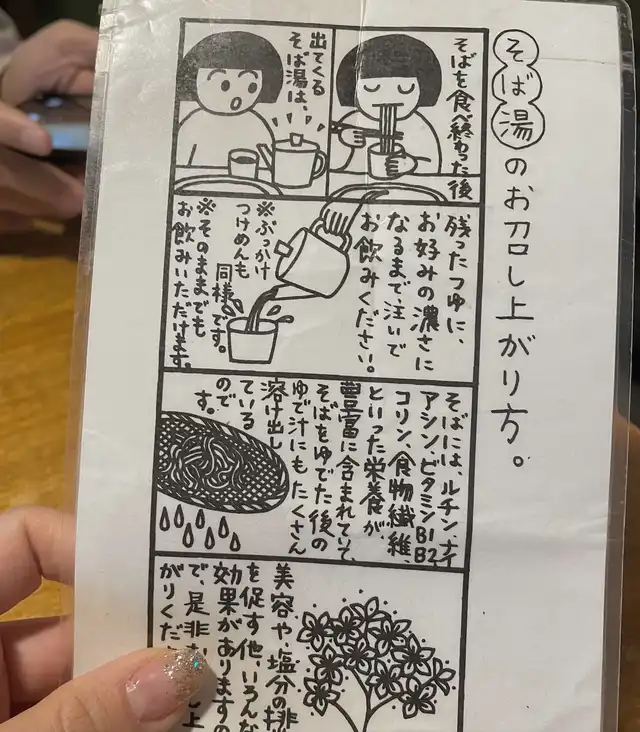 そば湯のお召し上がり方。
そばを食べ終わった後
出てくる
そば湯は、
残ったつゆに、
お好みの濃さに
なるまで、注いで
お飲みください。
※ぶっかけ
つけめんも
同様です。
※そのままでも
お飲みいただけます。
そばには、ルチン、ナイ
アシン、ビタミンB1 B2
コリン、食物繊維、
といった栄養食が、
豊富に含まれていて、
そばをゆでた後の
ゆで汁にもたくさん
溶け出し
ている
ので
す。
美容や塩分の排
を促す他、いろんな
効果がありますの
で、是非
上
がりくだ